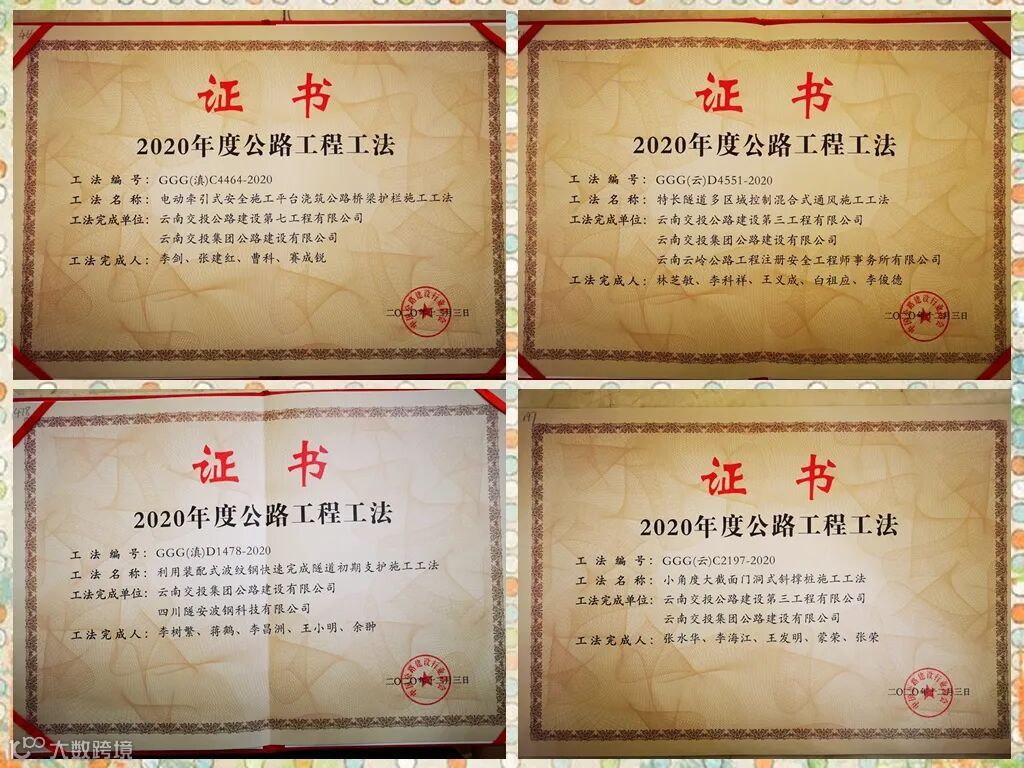 44
证 书
2020年度公路工程工法
工 法 编 号：GGG(滇)C4464-2020
工 法 名 称：电动牵引式安全施工平台浇筑公路桥梁护栏施工工法
工法完成单位：云南交投公路建设第七工程有限公司
云南交投集团公路建设有限公司
工法完成人：李剑、张建红、曹科、赛成锐
中国公路建设行业协会
二〇二〇年十二月三日
证 书
2020年度公路工程工法
工 法 编 号：GGG(云)D4551-2020
工 法 名 称：特长隧道多区域控制混合式通风施工工法
工法完成单位：云南交投公路建设第三工程有限公司
云南交投集团公路建设有限公司
云南云岭公路工程注册安全工程师事务所有限公司
工法完成人：林芝敏、李科祥、王义成、白祖应、李俊德
中国公路建设行业协会
二〇二〇年十二月三日
478
证 书
2020年度公路工程工法
工 法 编 号：GGG(滇)D1478-2020
工 法 名 称：利用装配式波纹钢快速完成隧道初期支护施工工法
工法完成单位：云南交投集团公路建设有限公司
四川隧安波钢科技有限公司
工法完成人：李树繁、蒋鹤、李昌洲、王小明、余翀
中国公路建设行业协会
二〇二〇年十二月三日
证 书
2020年度公路工程工法
工 法 编 号：GGG(云)C2197-2020
工 法 名 称：小角度大截面门洞式斜撑桩施工工法
工法完成单位：云南交投公路建设第三工程有限公司
云南交投集团公路建设有限公司
工法完成人：张水华、李海江、王发明、蒙荣、张荣
中国公路建设行业协会
二〇二〇年十二月三日
大数跨境